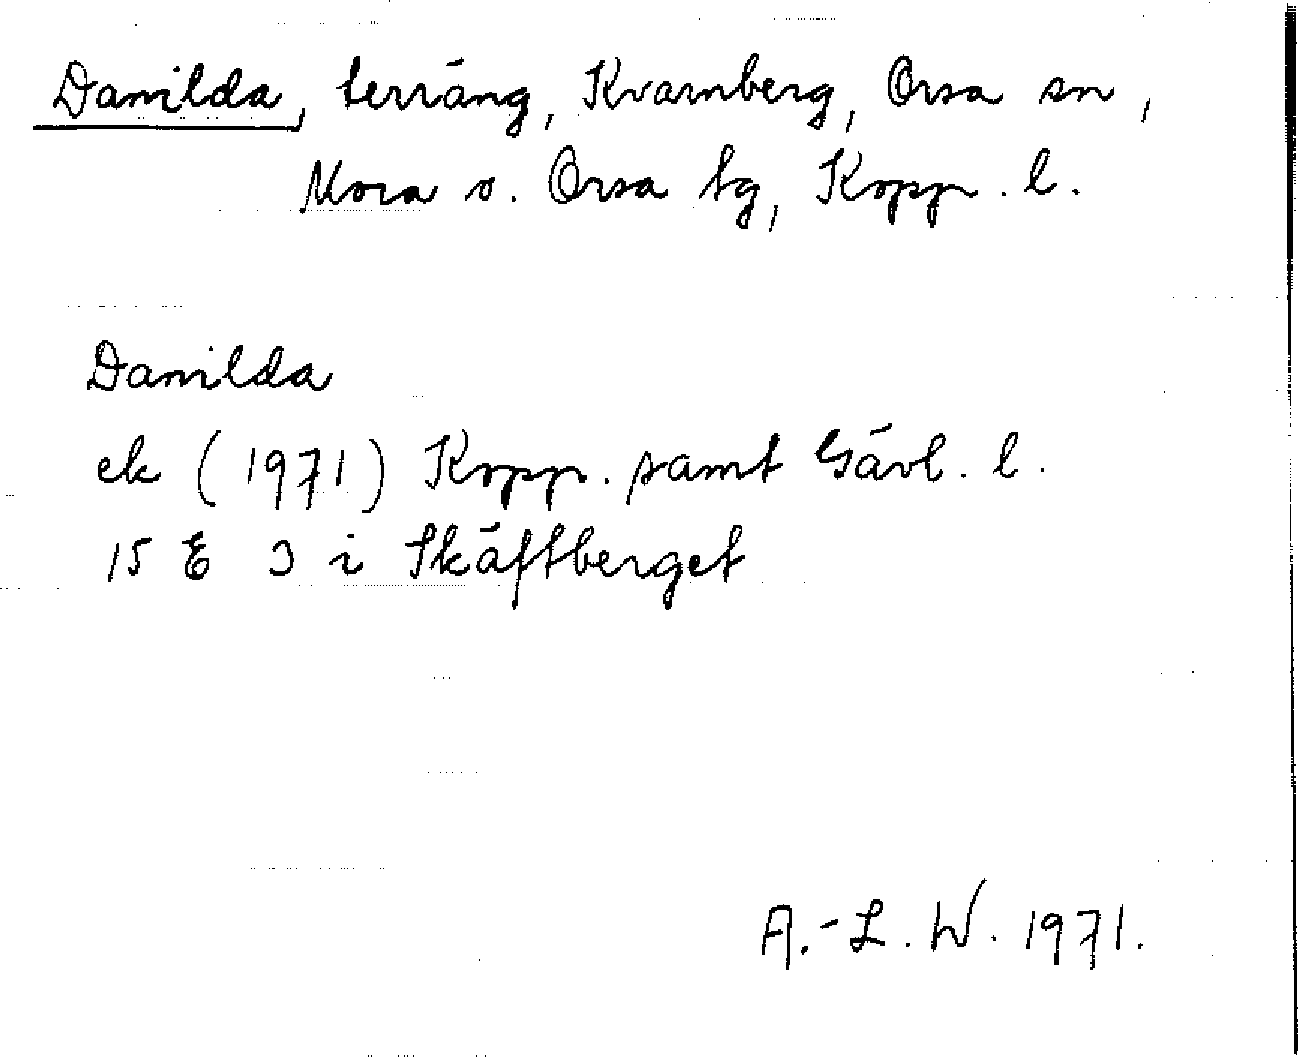 Danilda, terräng, Kvarnberg, Orsa sn,
Mora o. Orsa tg, Kopp. l.
Danilda
ek (1971) Kopp. samt Gävl. l.
15 E J i Skäftberget
A.-L. W. 1971.